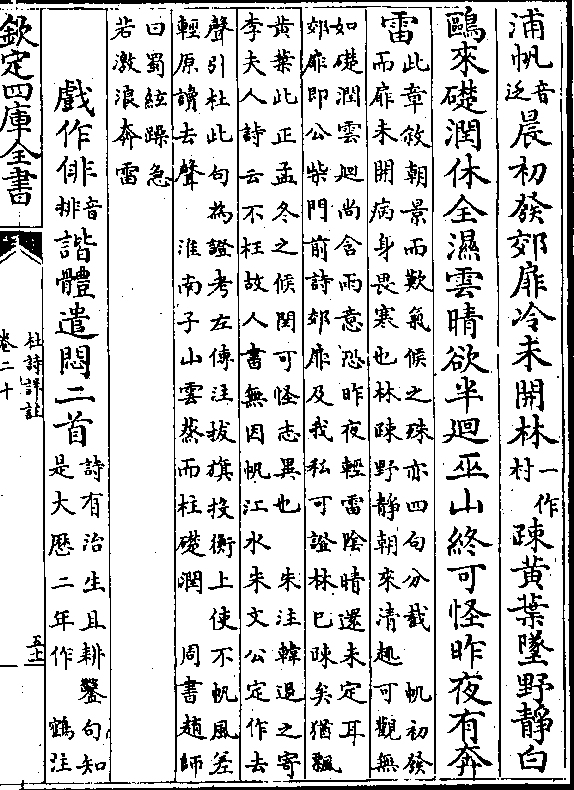 浦帆音泛晨初發郊扉冷未開林一作村疎黄葉墜野靜白
鷗來礎潤休全濕雲晴欲半迴巫山終可怪昨夜有奔
雷此章敘朝景而歎氣候之殊亦四句分截 帆初發
而扉未開病身畏寒也林疎野靜朝來清趣可觀無
如礎潤雲迴尚含雨意恐昨夜輕雷陰晴還未定耳
郊扉即公柴門前詩郊扉及我私可證林已疎矣猶飄
黄葉此正孟冬之候閏可怪志異也 朱注韓退之寄
李夫人詩云不枉故人書無因帆江水朱文公定作去
聲引杜此句為證考左傳注拔旗投衡上使不帆風差
輕原讀去聲 淮南子山雲蒸而柱礎潤 周書趙師
曰蜀絃躁急
若激浪奔雷
戲作俳音排諧體遣悶二首詩有治生且耕鑿句知
是大厯二年作 鶴注
欽定四庫全書
杜詩詳註
卷二十
五十一